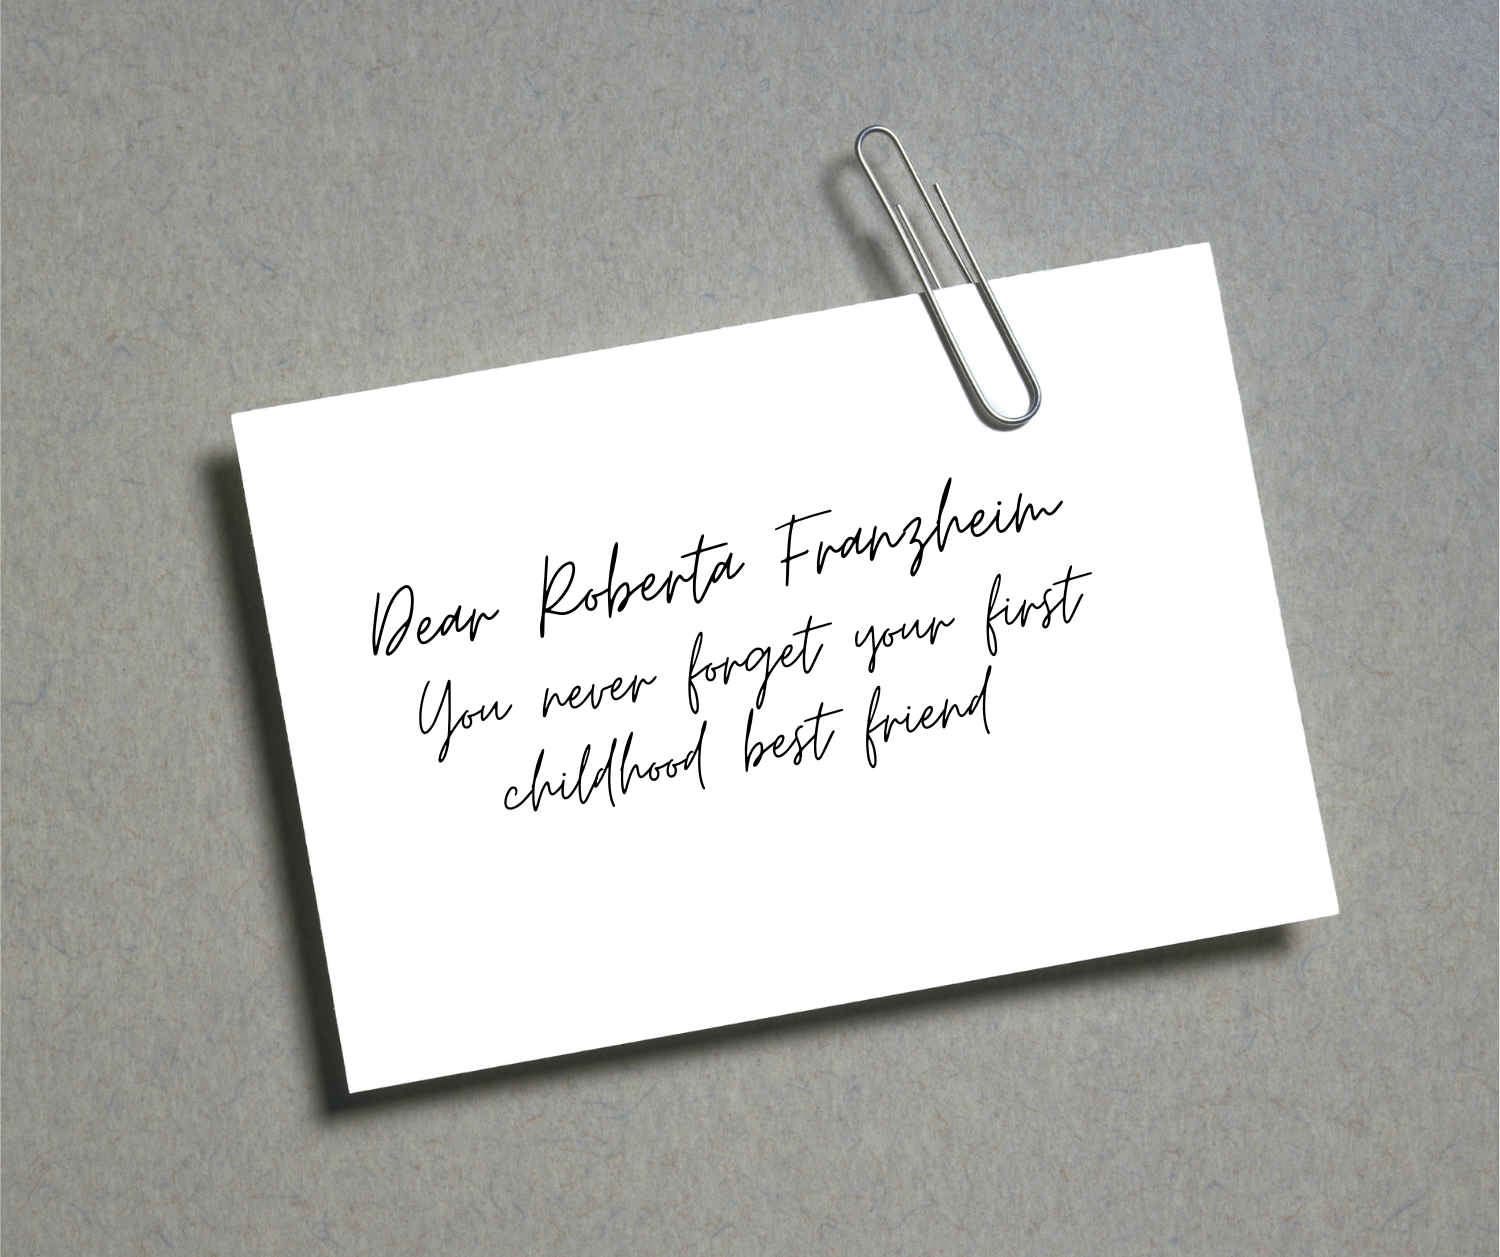 Dear Roberta Franzheim
You never forget your first
childhood best friend